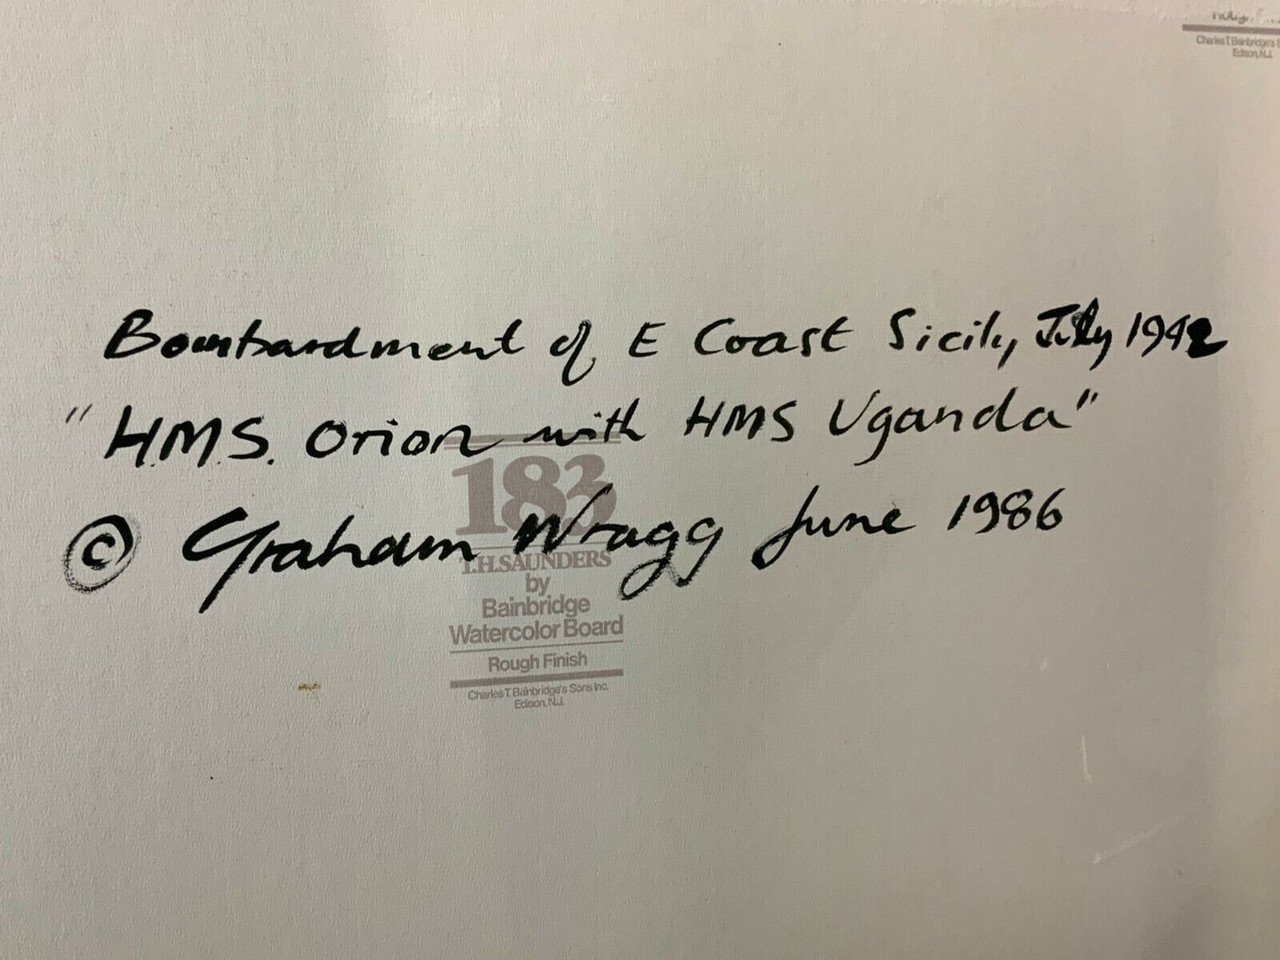 Charles T. Bainbridge's S
Edison, N.J.
Bombardment of E Coast Sicily, July 1942
"H.M.S. Orion with HMS Uganda"
© Graham Wragg June 1986
183
T.H.SAUNDERS
by
Bainbridge
Watercolor Board
Rough Finish
Charles T. Bainbridge's Sons Inc.
Edison, N.J.